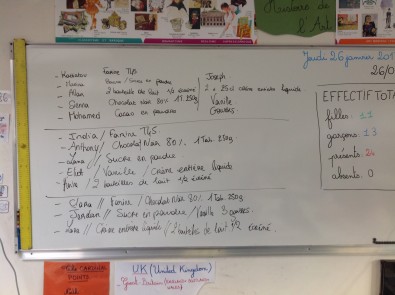 Histoire de l'Art
Jeudi 26 janvier 201
26/0
Farine T45
Beurre / Sucre en poudre
Allan 2 bouteilles de lait 1/2 écrémé
Sienna Chocolat Noir 80% 1T 250g
Mohamed Cacao en poudre
Joseph
2 x 25cl crème entière liquide
Vanille
Gousses
- India / Farine T45
- Anthony / Chocolat Noir 80% 1 Tab. 250g
- Liana // Sucre en poudre
- Eliot / Vanille / Crème entière liquide
/ 2 bouteilles de lait 1/2 écrémé
- Siana // Farine / Chocolat Noir 80% 1 Tab 250g
- Jordan // Sucre en poudre / Vanille 3 gousses
// Crème entière liquide // 2 bouteilles de lait 1/2 écrémé
EFFECTIF TOTA
filles : 11
garçons : 13
présents : 24
absents : 0
CARDINAL
POINTS
UK (United Kingdom)
Great Britain